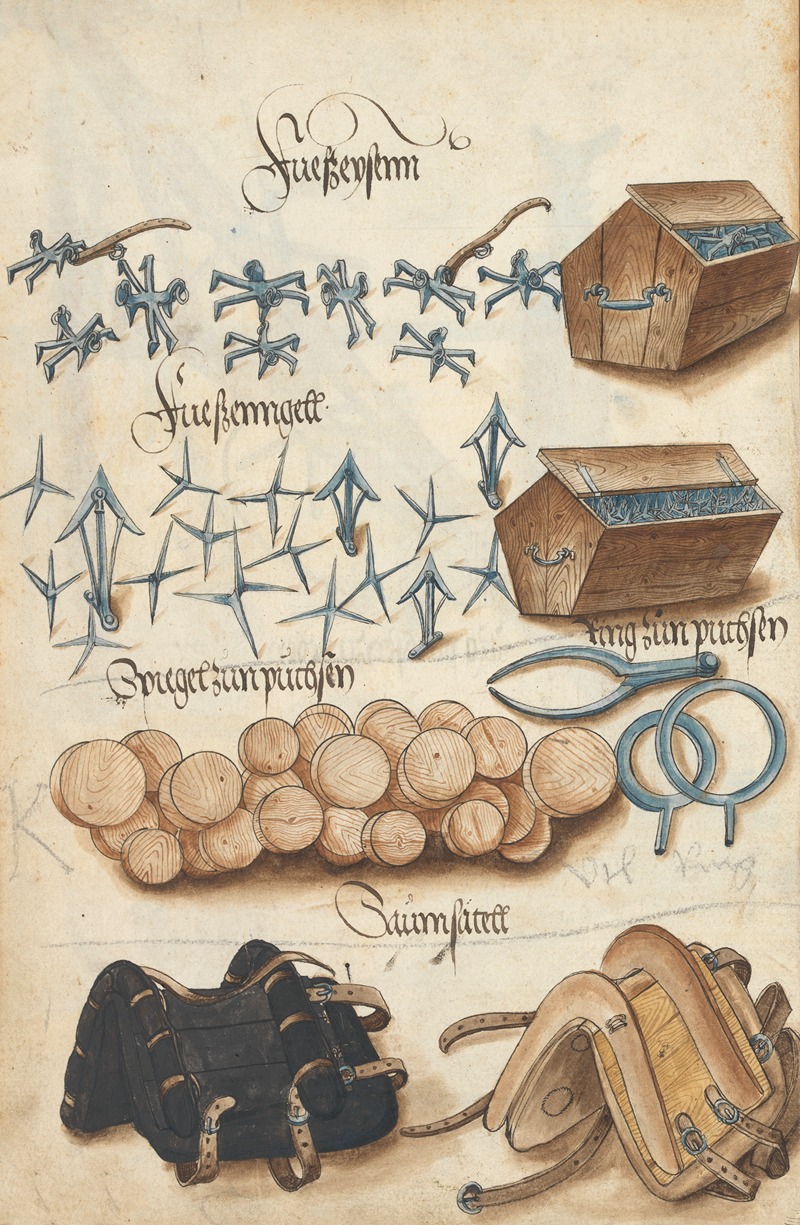 Fueßeysenn
Fueßenngell
Ring zun puchsen
Spiegel zun puchsen
K
Ring
Saumsätell